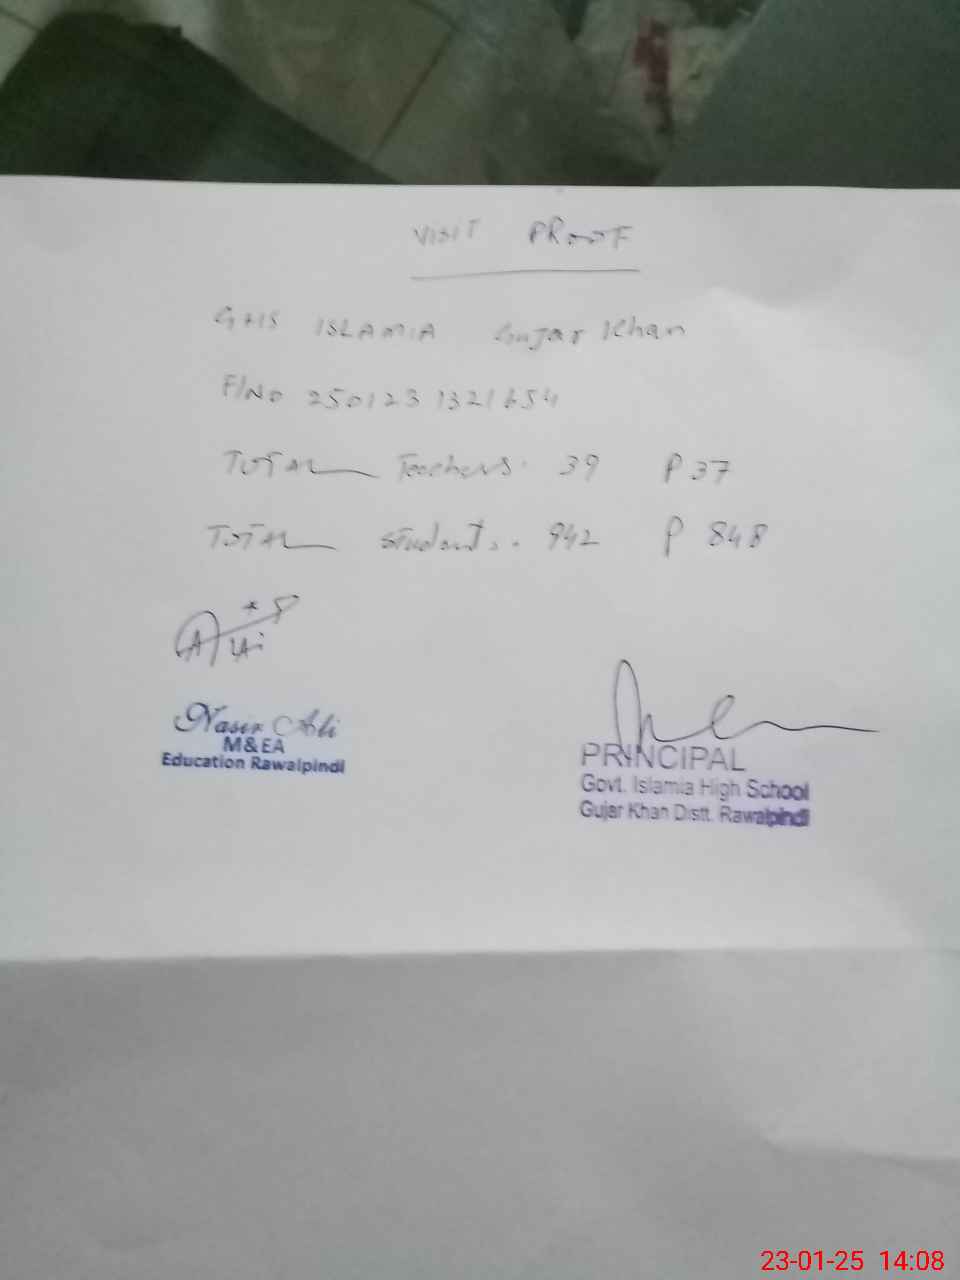 VISIT PROOF
GHS ISLAMIA Gujar Khan
F/NO 2501231321654
TOTAL Teachers. 39 P 37
TOTAL Students. 942 P 848
Nasir Ali
M&EA
Education Rawalpindi
PRINCIPAL
Govt. Islamia High School
Gujar Khan Distt. Rawalpindi
23-01-25 14:08